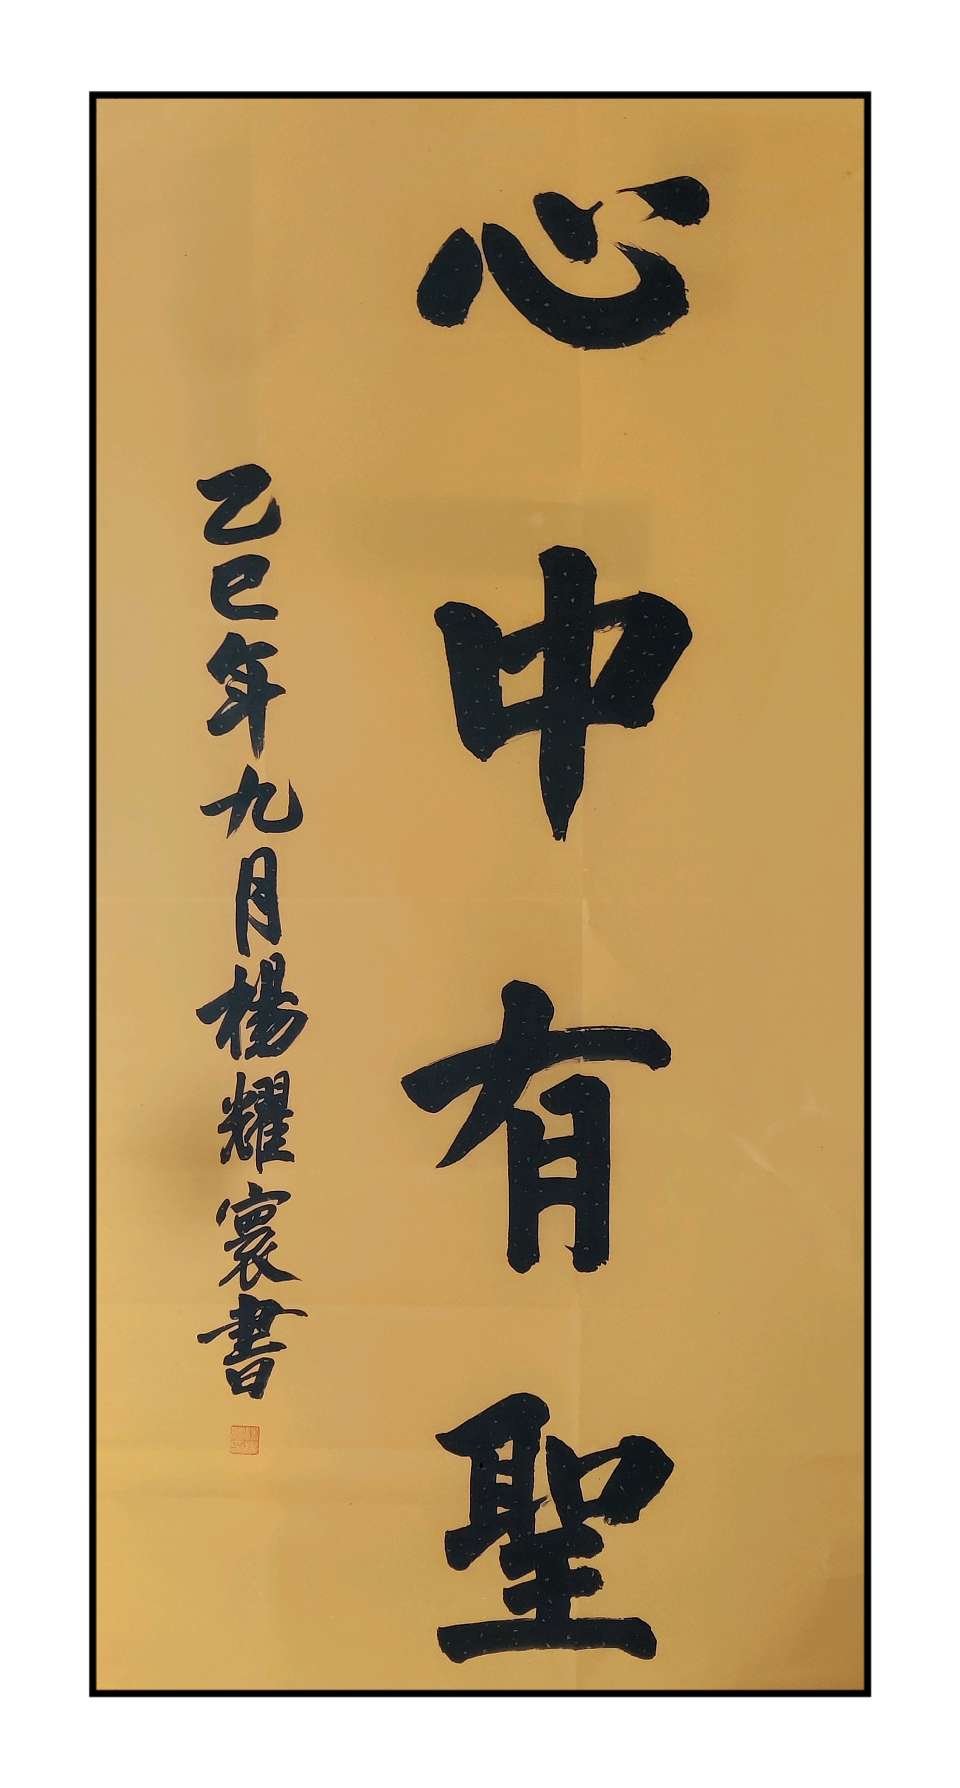 心中有聖
乙巳年九月楊耀寰書